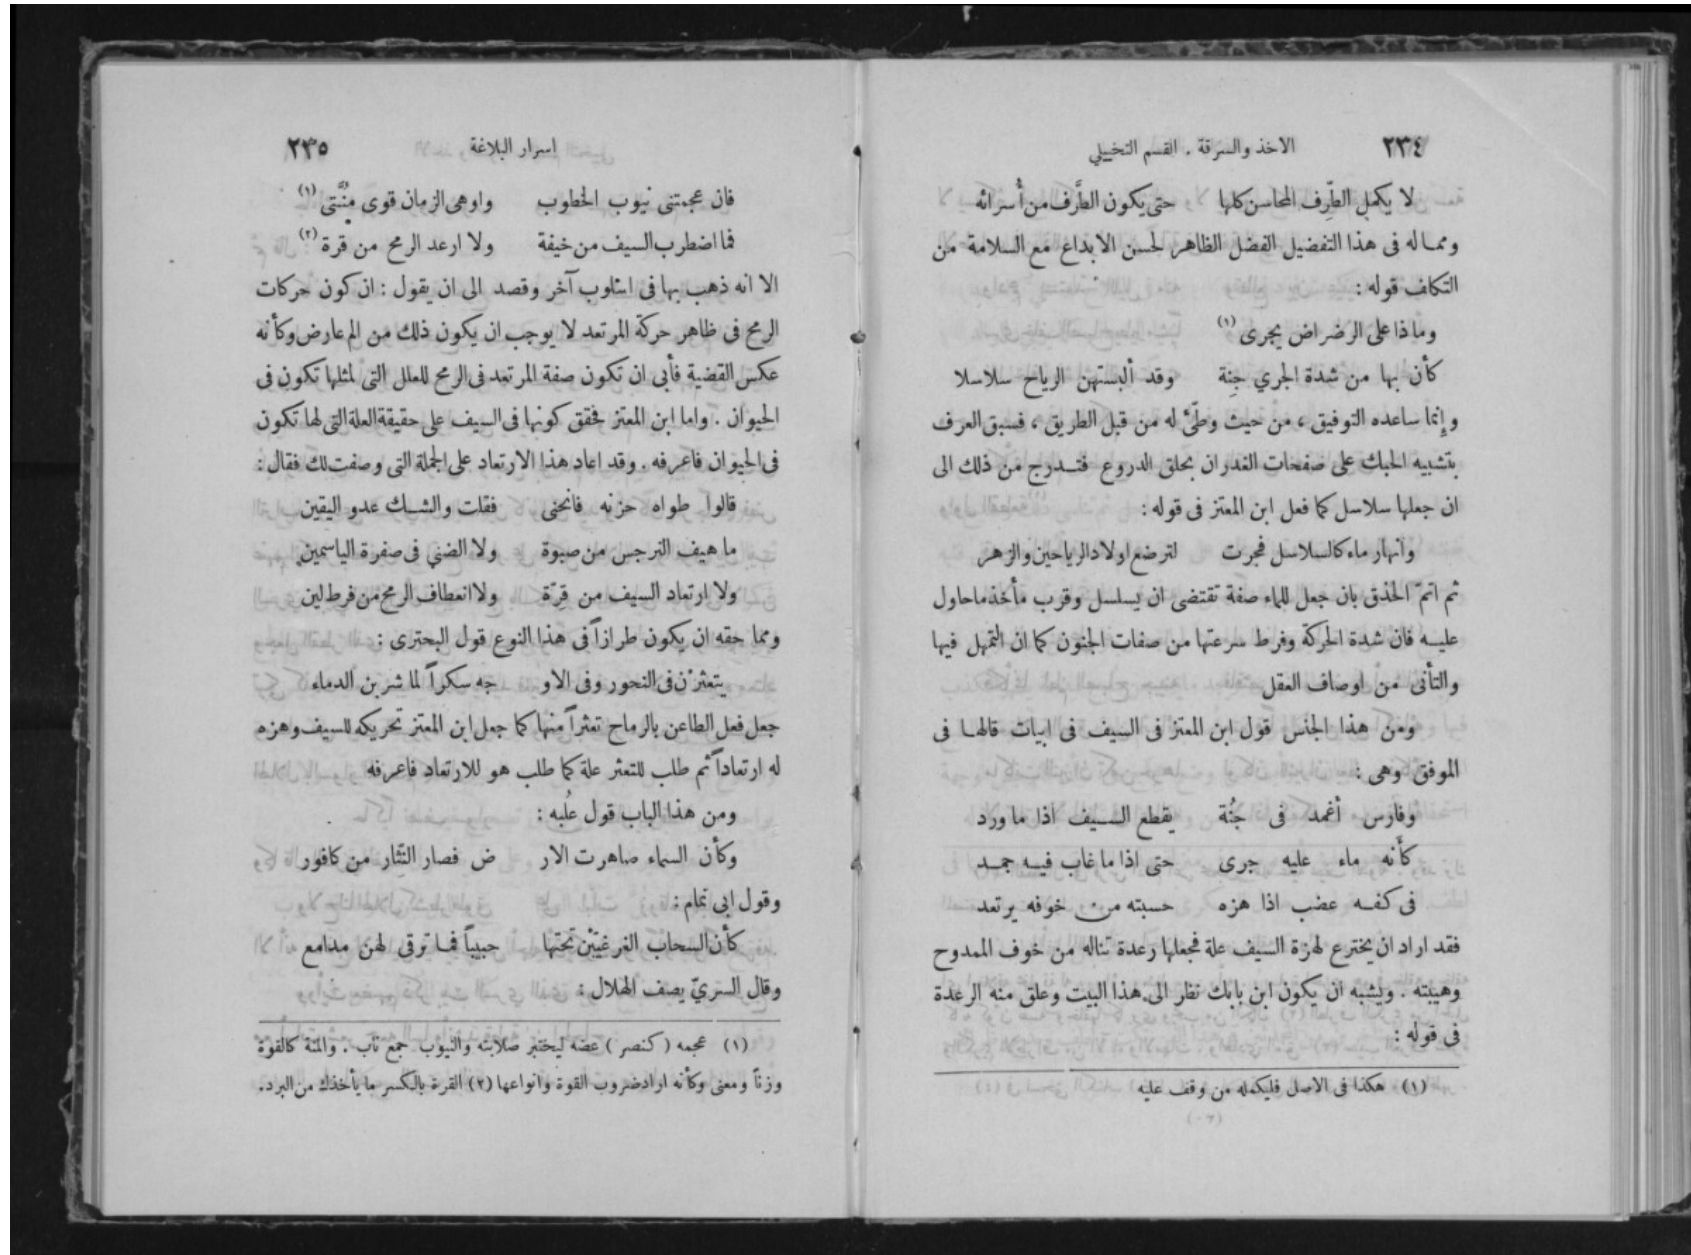 ٢٣٤ الاخذ والسرقة . القسم التخييلي
لا يكمل الطِّرف المحاسن كلها حتى يكون الطَّرف من أُسرائه
ومما له فى هذا التفضيل الفضل الظاهر لحسن الابداع مع السلامة من
التكلف قوله :
وماذا على الرضراض يجرى (١)
كأن بها من شدة الجري جِنة وقد ألبستهن الرياح سلاسلا
وإنما ساعده التوفيق ، من حيث وطّئ له من قبل الطريق ، فسبق العرف
بتشبيه الحبك على صفحات الغدران بحلق الدروع فتدرج من ذلك الى
ان جعلها سلاسل كما فعل ابن المعتز فى قوله :
وانهار ماء كالسلاسل فجرت لترضع اولاد الرياحين والزهر
ثم اتمّ الحذق بان جعل للماء صفة تقتضى ان يسلسل وقرب مأخذ ماحاول
عليه فان شدة الحركة وفرط سرعتها من صفات الجنون كما ان التمهل فيها
والتأنى من اوصاف العقل
ومن هذا الجنس قول ابن المعتز فى السيف فى ابيات قالها فى
الموفق وهى :
وفارس أغمد فى جُنة يقطع السيف اذا ما ورد
كأنه ماء عليه جرى حتى اذا ما غاب فيه جمد
فى كفه عضب اذا هزه حسبته من خوفه يرتعد
فقد اراد ان يخترع لهزة السيف علة فجعلها رعدة تناله من خوف الممدوح
وهيبته . ويشبه ان يكون ابن بابك نظر الى هذا البيت وعلق منه الرعدة
فى قوله :
(١) هكذا فى الاصل فليكمله من وقف عليه
(٣٠)
اسرار البلاغة ٢٣٥
فان عجمتنى نيوب الخطوب واوهى الزمان قوى مِنُنّتى (١)
فما اضطرب السيف من خيفة ولا ارعد الرمح من قرة (٢)
الا انه ذهب بها فى اسلوب آخر وقصد الى ان يقول : ان كون حركات
الرمح فى ظاهر حركة المرتعد لا يوجب ان يكون ذلك من الم عارض وكأنه
عكس القضية فأبى ان تكون صفة المرتعد فى الرمح للعلل التى لمثلها تكون فى
الحيوان . واما ابن المعتز فحقق كونها فى السيف على حقيقة العلة التى لها تكون
فى الحيوان فاعرفه . وقد اعاد هذا الارتعاد على الجملة التى وصفت لك فقال :
قالوا طواه حزنه فانحنى فقلت والشك عدو اليقين
ما هيف النرجس من صبوة ولا الضنى فى صفرة الياسمين
ولا ارتعاد السيف من قِرّة ولا انعطاف الرمح من فرط لين
ومما حقه ان يكون طرازاً فى هذا النوع قول البحترى :
يتعثرن فى النحور وفى الاو جه سكراً لما شربن الدماء
جعل فعل الطاعن بالرماح تعثراً منها كما جعل ابن المعتز تحريكه للسيف وهزه
له ارتعاداً ثم طلب للتعثر علة كما طلب هو للارتعاد فاعرفه
ومن هذا الباب قول عُلبه :
وكأن السماء صاهرت الار ض فصار النِّثار من كافور
وقول ابى تمام :
كأن السحاب الغر غيّبْن تحتها حبيباً فما ترقى لهن مدامع
وقال السريّ يصف الهلال :
(١) عجمه (كنصر) عضه ليختبر صلابته والنيوب جمع ناب . والمنة كالقوة
وزناً ومعنى وكأنه اراد ضروب القوة وانواعها (٢) القرة بالكسر ما يأخذك من البرد .